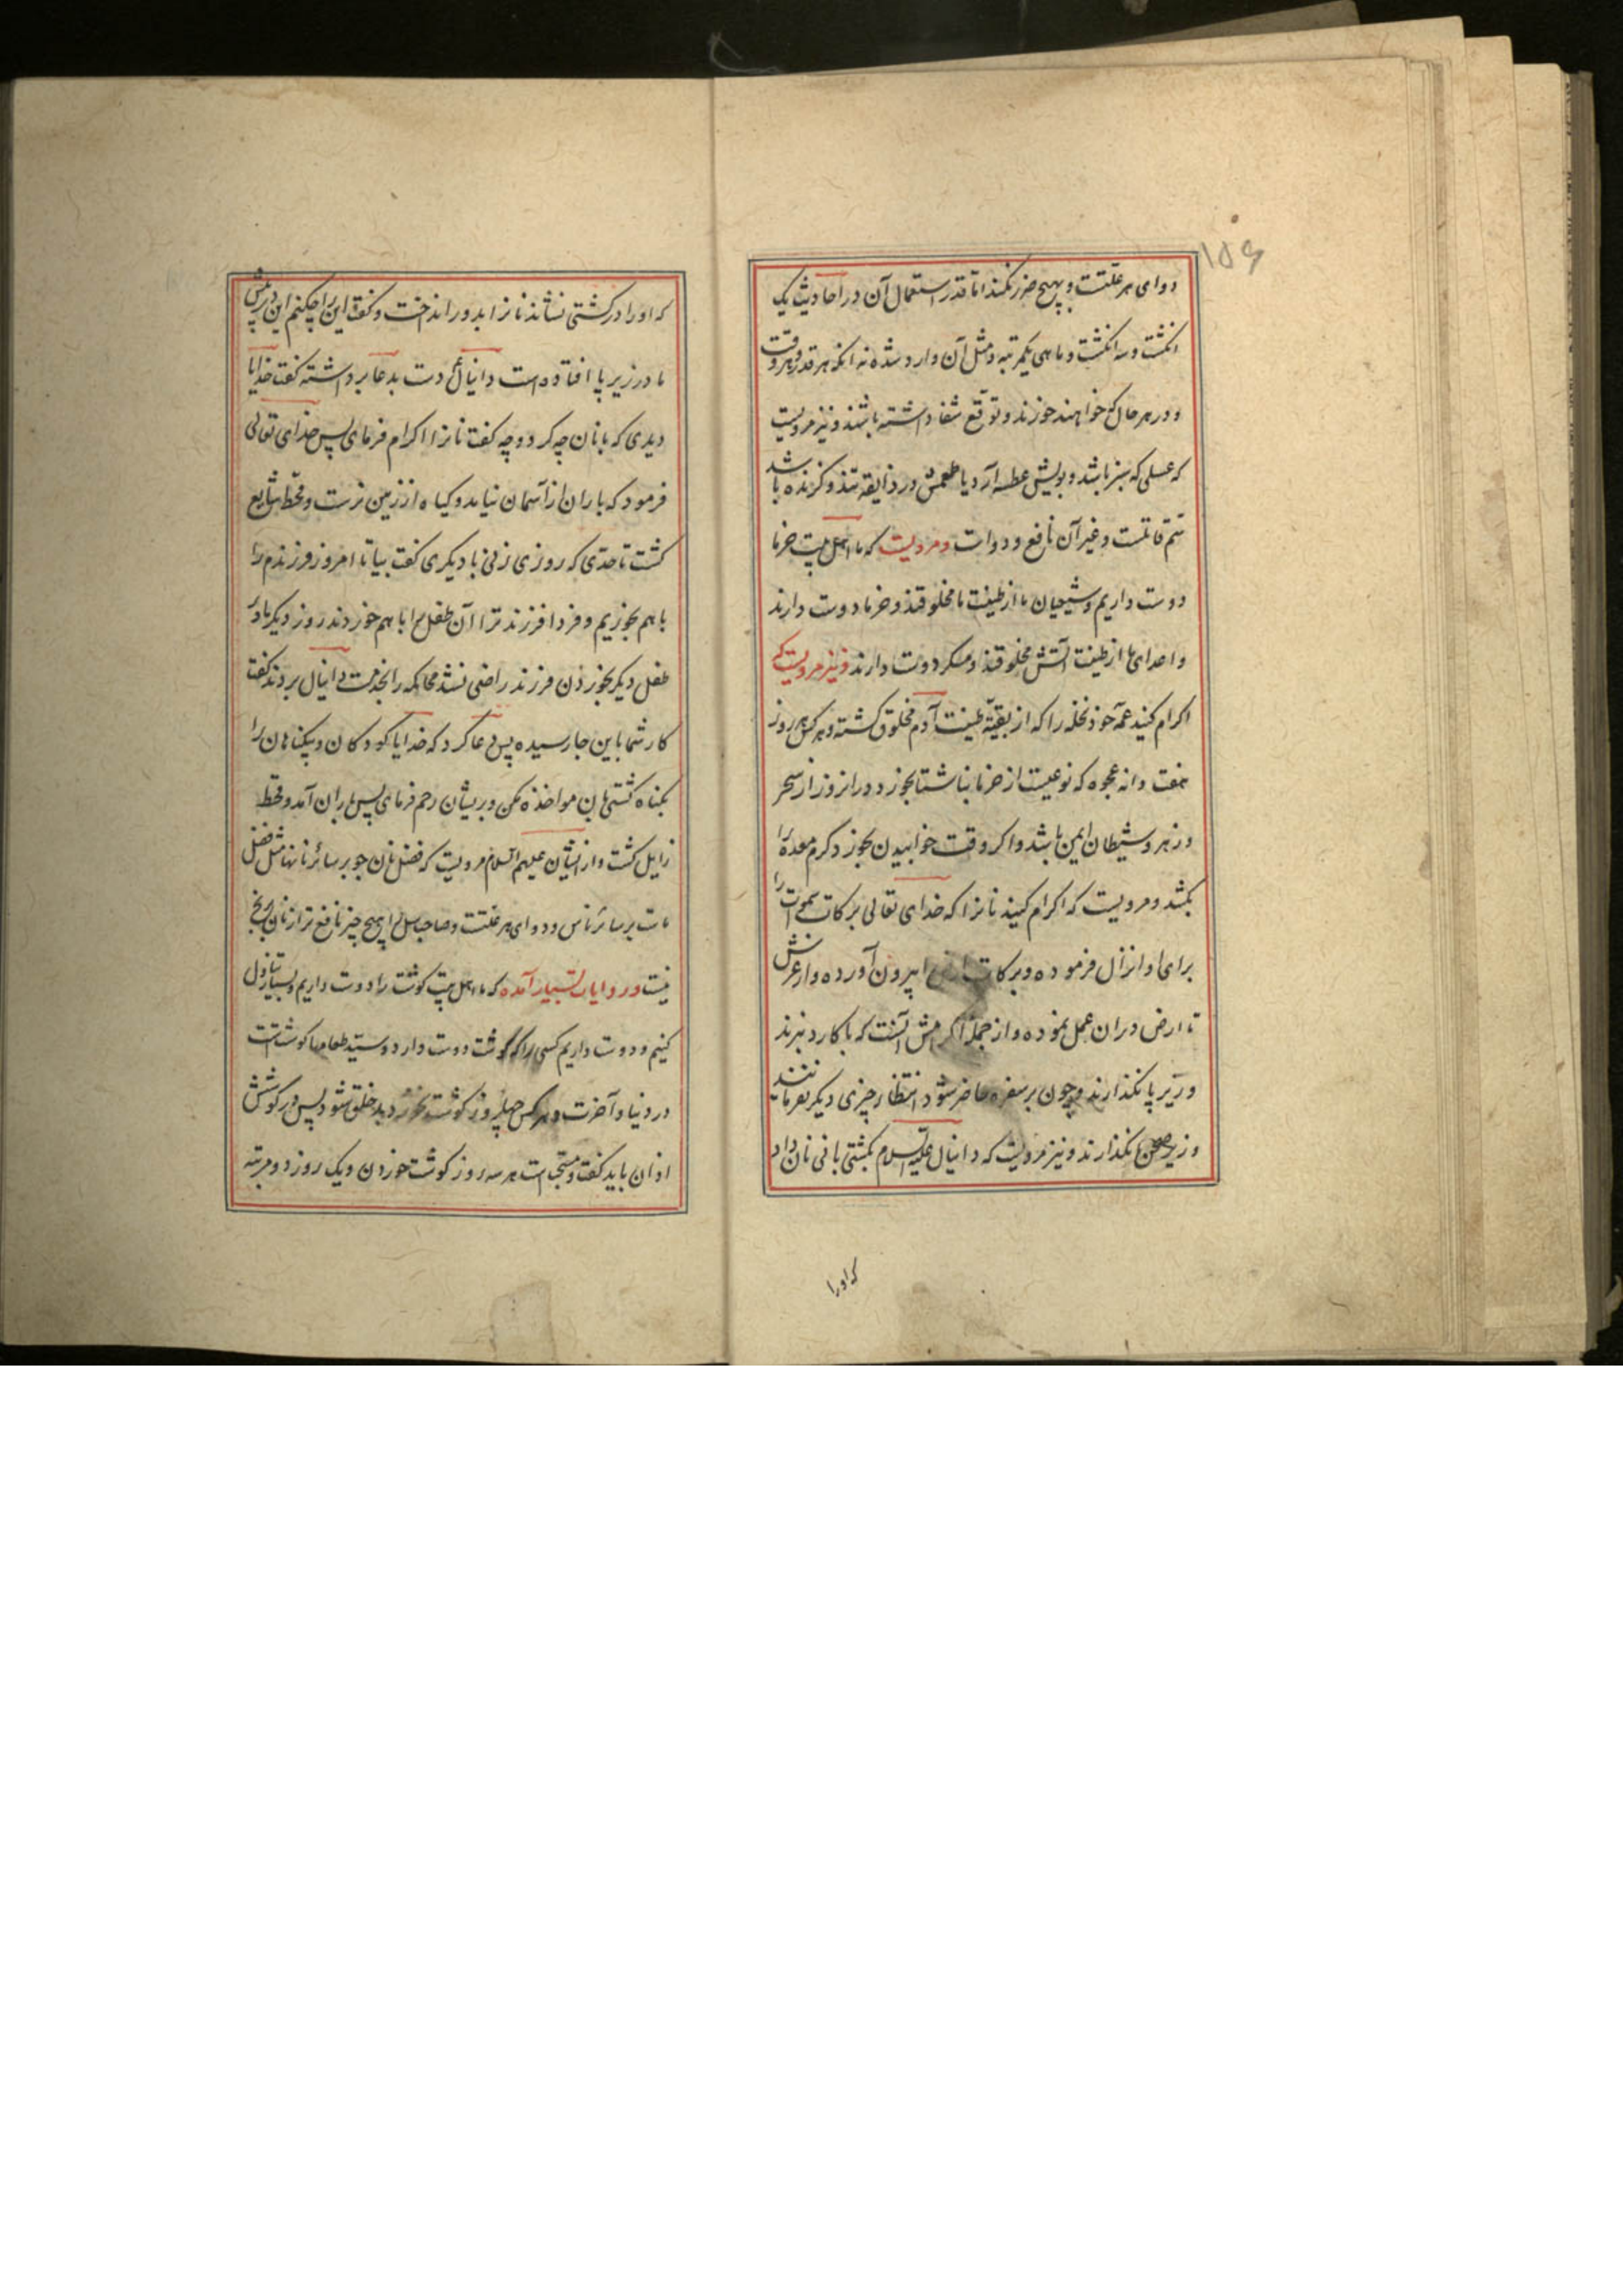 ۱۵۶
دوای هر علتست و بهیچ ضرر نکند اما قدر استعمال آن در احادیث یک
انکشت و سه انکشت و ماهی یکمرتبه و مثل آن وارد شده نه انکه هر قدر و هر وقت
و در هر حال که خواهند خورند و توقع شفا داشته باشند و نیز مرویست
که عسلی که سبز باشد و بویش عطسه آرد یا طعمش در ذایقه تند و کزنده باشد
سم قاتلست و غیر آن نافع و دواست و مرویست که ما اهل بیت خرما
دوست داریم و شیعیان ما از طینت ما مخلوقند و خرما دوست دارند
و اعدای ما از طینت آتش مخلوقند و مسکر دوست دارند و نیز مرویست که
اکرام کنید عمه خود نخله را که از بقیه طینت آدم مخلوق کشته و هر کس هر روز
هفت دانه عجوه که نوعیست از خرما بناشتا بخورد در انروز از سحر
و زهر و شیطان ایمن باشد و اکر وقت خوابیدن بخورد کرم معده را
بکشد و مرویست که اکرام کنید نانرا که خدای تعالی برکات سموات را
برای او انزال فرموده و برکات ارض را بیرون آورده و از عرش
تا ارض دران عمل نموده و از جمله اکرامش آنست که با کارد نبرند
و زیر پا نکذارند و چون بر سفره حاضر شود انتظار چیزی دیکر نفرمایند
و زیر صحن نکذارند و نیز مرویست که دانیال علیه السلام بکشتی بانی نان داد
که اورا
که اورا در کشتی نشاند نانرا بدور انداخت و کفت این را چکنم این در پیش
ما در زیر پا افتاده است دانیال ع دست بدعا برداشته کفت خدایا
دیدی که با نان چه کرد و چه کفت نانرا اکرام فرمای پس خدای تعالی
فرمود که باران از آسمان نیامد و کیاه از زمین نرست و قحط شایع
کشت تا حدی که روزی زنی با دیکری کفت بیا تا امروز فرزندم را
با هم بخوریم و فردا فرزند ترا آن طفل را با هم خوردند روز دیکر مادر
طفل دیکر بخوردن فرزند راضی نشد محاکمه را بخدمت دانیال بردند کفت
کار شما باین جا رسیده پس دعا کرد که خدایا کودکان و بیکناهان را
بکناه کشتی بان مواخذه مکن و بریشان رحم فرمای پس باران آمد و قحط
زایل کشت و از ایشان علیهم السلام مرویست که فضل نان جو بر سائر نانها مثل فضل
ماست بر سائر ناس و دوای هر علتست و صاحب سل را هیچ چیز نافع تر از نان برنج
نیست و در روایات بسیار آمده که ما اهل بیت کوشت را دوست داریم و بسیار تناول
کنیم و دوست داریم کسی را که کوشت دوست دارد و سید طعامها کوشتست
در دنیا و آخرت و هر کس چهل روز کوشت نخورد بد خلق شود پس در کوشش
اذان باید کفت و مستحب است هر سه روز کوشت خوردن و یک روز دو مرتبه